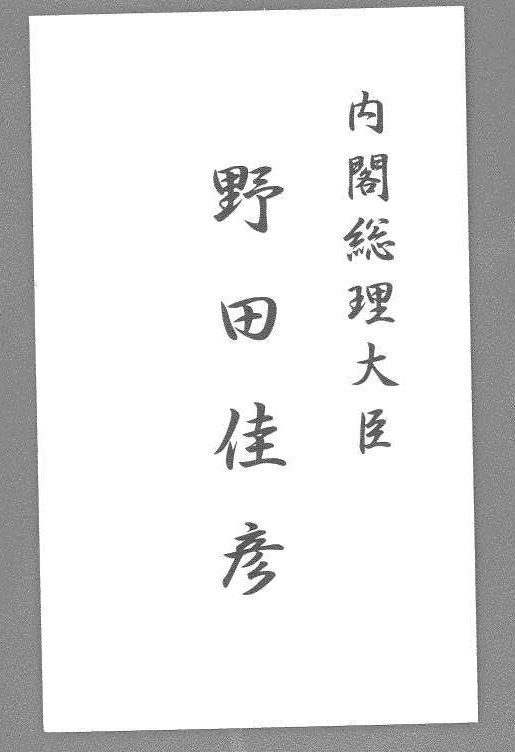 内閣総理大臣
野田佳彦